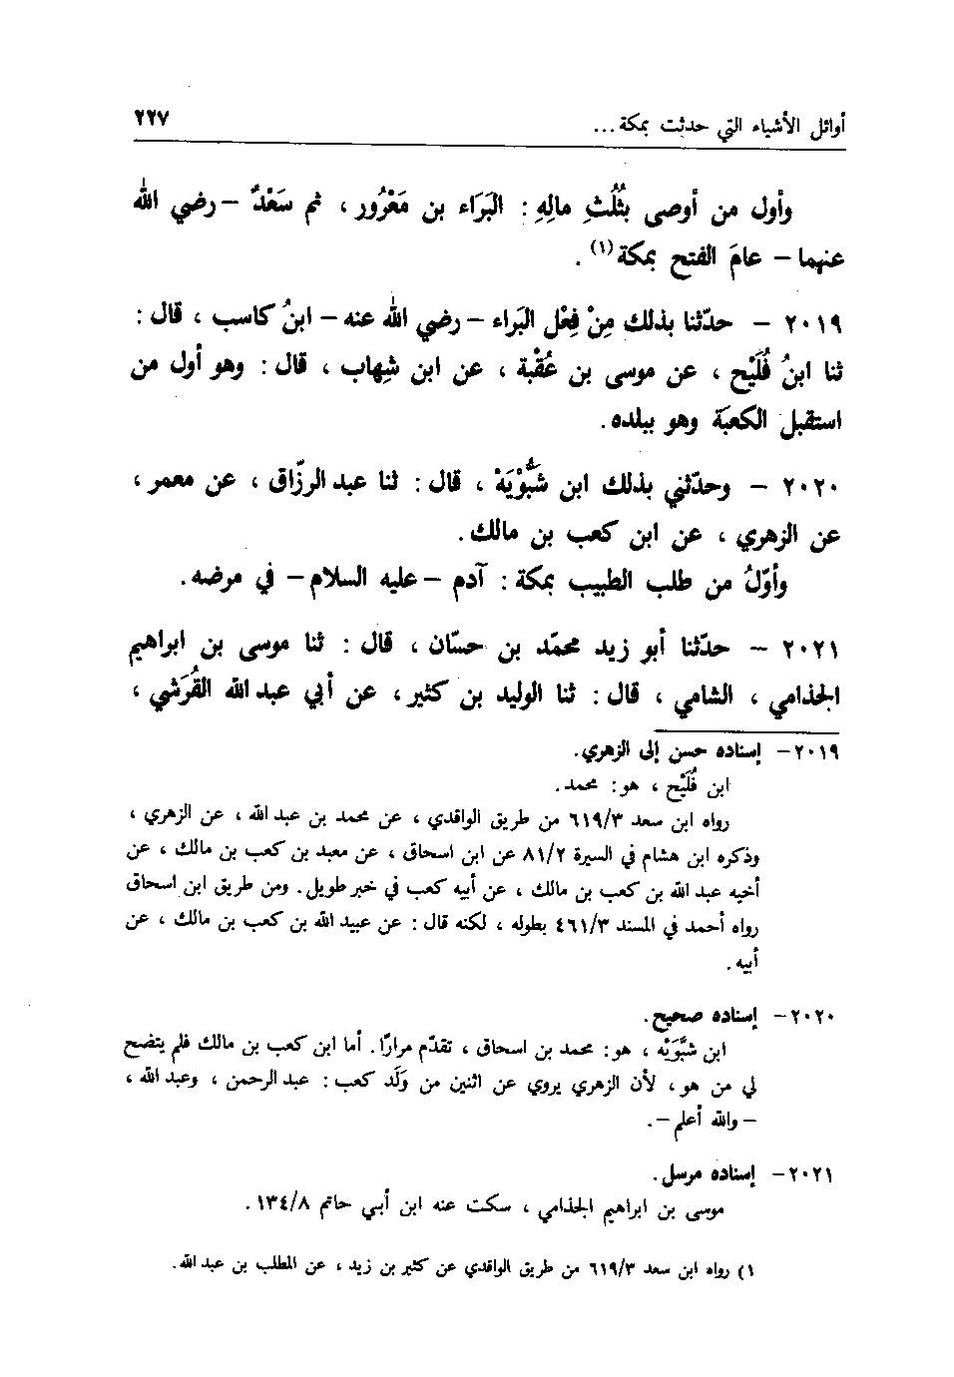 أوائل الأشياء التي حدثت بمكة ... ٢٢٧
وأول من أوصى بثُلُثِ مالِهِ : البَرَاء بن مَعْرُور ، ثم سَعْدٌ – رضي الله
عنهما – عامَ الفتح بمكة (١) .
٢٠١٩ – حدّثنا بذلك مِنْ فِعْل البراء – رضي الله عنه – ابنُ كاسب ، قال :
ثنا ابنُ فُلَيْح ، عن موسى بن عُقْبة ، عن ابن شِهاب ، قال : وهو أول من
استقبل الكعبة وهو ببلده .
٢٠٢٠ – وحدّثني بذلك ابن شَبُّوْيَهْ ، قال : ثنا عبد الرزّاق ، عن معمر ،
عن الزهري ، عن ابن كعب بن مالك .
وأوّلُ من طلب الطبيب بمكة : آدم – عليه السلام – في مرضه .
٢٠٢١ – حدّثنا أبو زيد محمّد بن حسّان ، قال : ثنا موسى بن ابراهيم
الجذامي ، الشامي ، قال : ثنا الوليد بن كثير ، عن أبي عبد الله القُرَشي ،
٢٠١٩ – إسناده حسن إلى الزهري .
ابن فُلَيْح ، هو : محمد .
رواه ابن سعد ٦١٩/٣ من طريق الواقدي ، عن محمد بن عبد الله ، عن الزهري ،
وذكره ابن هشام في السيرة ٨١/٢ عن ابن اسحاق ، عن معبد بن كعب بن مالك ، عن
أخيه عبد الله بن كعب بن مالك ، عن أبيه كعب في خبر طويل . ومن طريق ابن اسحاق
رواه أحمد في المسند ٤٦١/٣ بطوله ، لكنه قال : عن عبيد الله بن كعب بن مالك ، عن
أبيه .
٢٠٢٠ – إسناده صحيح .
ابن شَبُّوَيْه ، هو : محمد بن اسحاق ، تقدّم مرارًا . أما ابن كعب بن مالك فلم يتضح
لي من هو ، لأن الزهري يروي عن اثنين من وَلَد كعب : عبد الرحمن ، وعبد الله ،
– والله أعلم – .
٢٠٢١ – إسناده مرسل .
موسى بن ابراهيم الجذامي ، سكت عنه ابن أبي حاتم ١٣٤/٨ .
١) رواه ابن سعد ٦١٩/٣ من طريق الواقدي عن كثير بن زيد ، عن المطلب بن عبد الله .